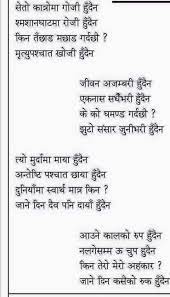 सेतो कात्रोमा गोजी हुँदैन
श्मशानघाटमा रोजी हुँदैन
किन तँछाड मछाड गर्दछौ ?
मृत्युपश्चात खोजी हुँदैन
जीवन अजम्बरी हुँदैन
एकनास सधैंभरी हुँदैन
के को घमण्ड गर्दछौ ?
झुटो संसार जुनीभरी हुँदैन
त्यो मुर्दामा माया हुँदैन
अन्तेष्टि पश्चात छाया हुँदैन
दुनियाँमा स्वार्थ मात्र किन ?
जाने दिन दैव पनि दायाँ हुँदैन
आउने कालको रुप हुँदैन
नलगेसम्म ऊ चुप हुँदैन
किन तेरो मेरो अहंकार ?
जाने दिन कसैको रुक हुँदैन